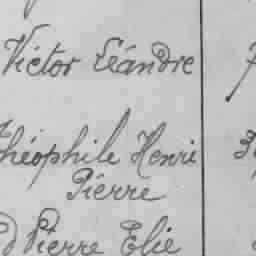 Victor Léandre
Théophile Henri
Pierre
Pierre Elie